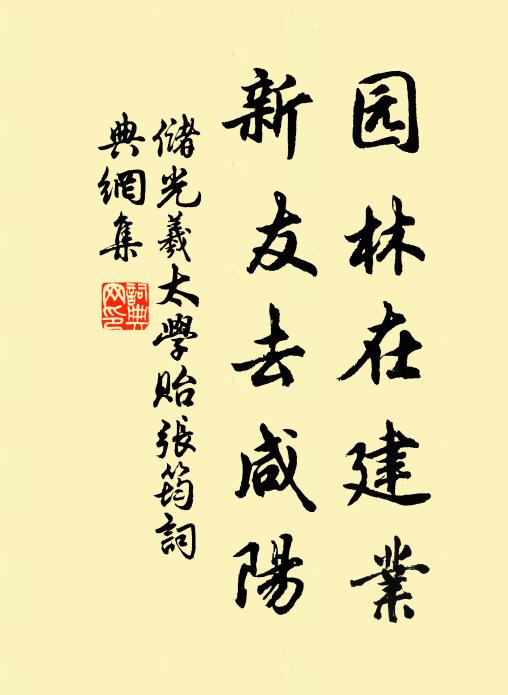 园林在建业
新友去咸陽
儲光羲太學貽張筠詞
典網集
詞典
网印